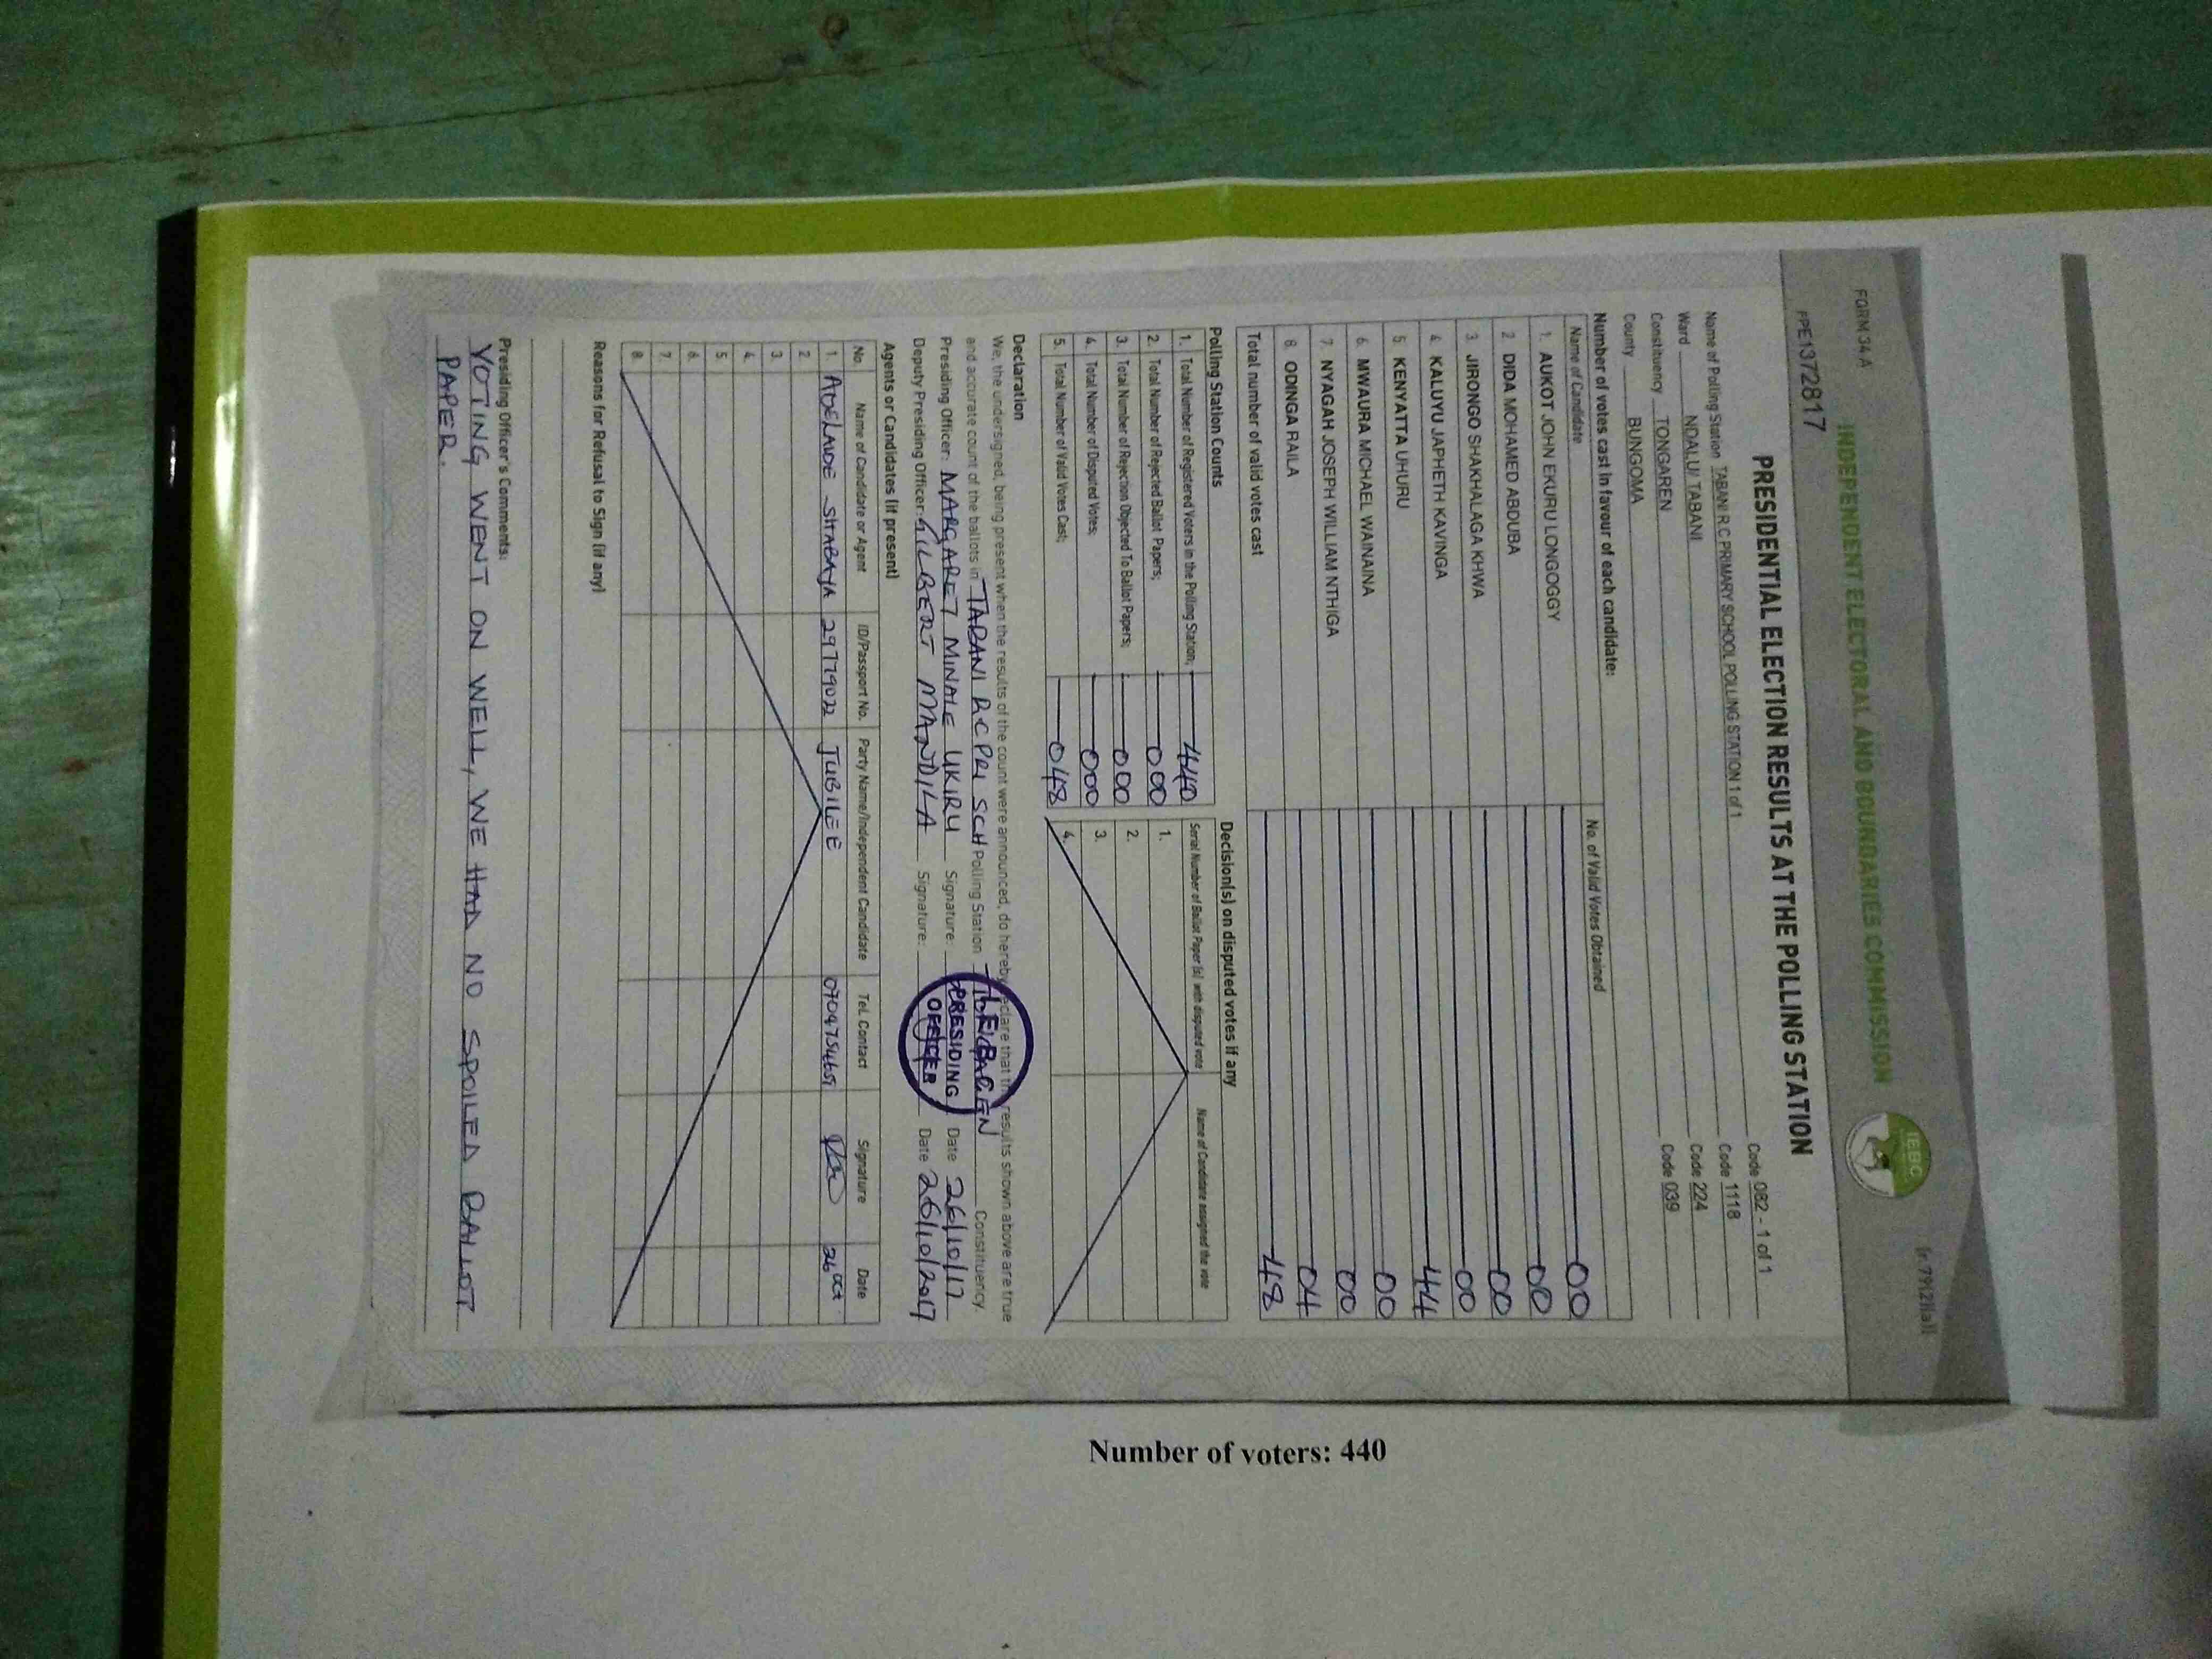 FORM 34 A
(r.79(2)(a))
INDEPENDENT ELECTORAL AND BOUNDARIES COMMISSION
IEBC
PE1372817
PRESIDENTIAL ELECTION RESULTS AT THE POLLING STATION
Name of Polling Station TABANI R C PRIMARY SCHOOL POLLING STATION 1 of 1 Code 082 - 1 of 1
Ward NDALU/ TABANI Code 1118
Constituency TONGAREN Code 224
County BUNGOMA Code 039
Number of votes cast in favour of each candidate:
Name of Candidate No. of Valid Votes Obtained
1. AUKOT JOHN EKURU LONGOGGY 00
2 DIDA MOHAMED ABDUBA 00
3 JIRONGO SHAKHALAGA KHWA 00
4. KALUYU JAPHETH KAVINGA 00
5. KENYATTA UHURU 44
6. MWAURA MICHAEL WAINAINA 00
7. NYAGAH JOSEPH WILLIAM NTHIGA 00
8. ODINGA RAILA 04
Total number of valid votes cast 48
Polling Station Counts
1. Total Number of Registered Voters in the Polling Station; 440
2. Total Number of Rejected Ballot Papers; 000
3. Total Number of Rejection Objected To Ballot Papers; 000
4. Total Number of Disputed Votes; 000
5. Total Number of Valid Votes Cast; 048
Decision(s) on disputed votes if any
Serial Number of Ballot Paper (s) with disputed vote Name of Candidate assigned the vote
1.
2.
3.
4.
Declaration
We, the undersigned, being present when the results of the count were announced, do hereby declare that the results shown above are true
and accurate count of the ballots in TABANI RC PRI SCH Polling Station Constituency.
Presiding Officer: MARGARET Signature: Date 26/10/17
Deputy Presiding Officer: GILBERT MANDILA Signature: Date 26/10/2017
PRESIDING
OFFICER
Agents or Candidates (if present)
No. Name of Candidate or Agent ID/Passport No. Party Name/Independent Candidate Tel. Contact Signature Date
1. ADELAIDE 29779022 JUBILEE 26 Oct
2
3.
4.
5.
6.
7.
8.
Reasons for Refusal to Sign (if any)
Presiding Officer's Comments:
VOTING WENT ON WELL, WE HAD NO SPOILED BALLOT
PAPER.
Number of voters: 440